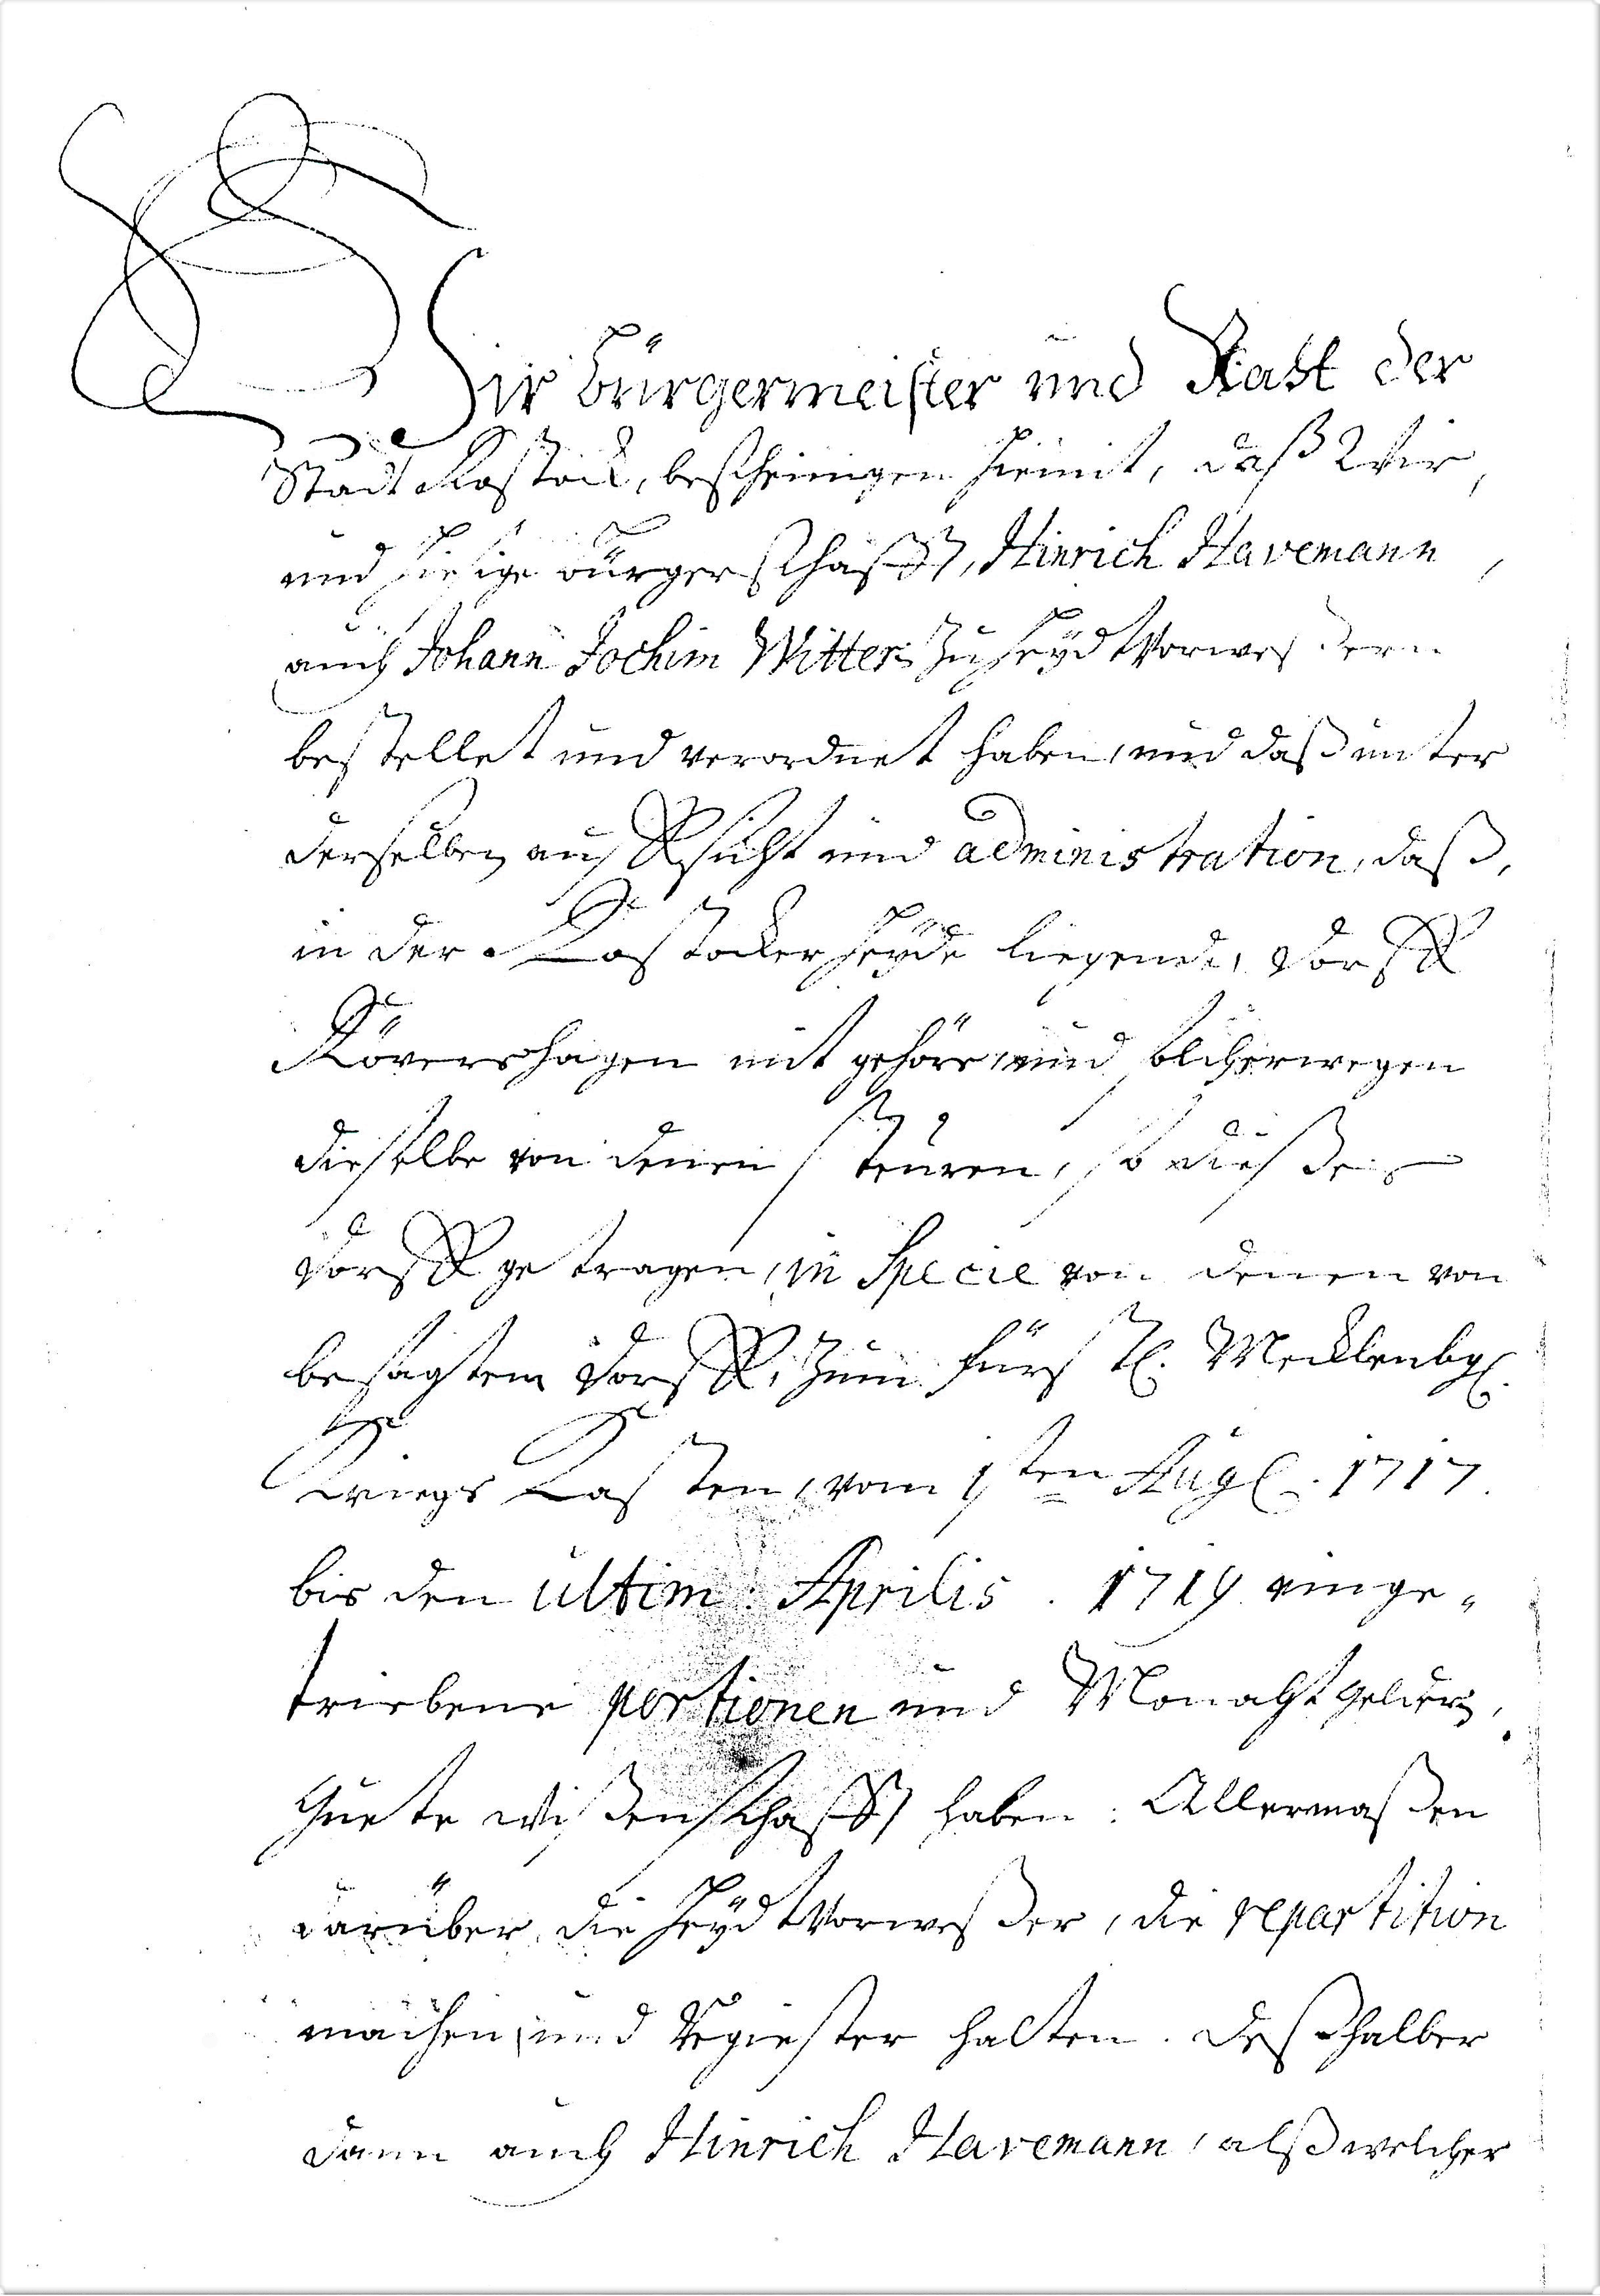 Wir Bürgermeister und Raht der
Stadt Rostock, bescheinigen hiemit, daß Wir
und hiesige Bürgerschafft, Hinrich Havemann
auch Johann Jochim Witten zu HeydVorwesern
bestellet und verordnet haben, und daß unter
derselben auffsicht und administration, daß,
in der Rostocker Heyde liegende, Dorff
Rövershagen mit gehöre, und
dieselbe von denen steuren, so dieses
Dorff getragen, in Specie von denen von
besagtem Dorff, zum Fürstl. Mecklenbg.
Kriegs Casten, vom 1sten Aug. 1717
bis den ultim: Aprilis. 1719 einge-
triebene portionen und Monahtgelder,
Guete wißenschafft haben. Allermaßen
darüber die HeydVorweser, die repartition
machen, und Register halten. Deßhalber
dann auch Hinrich Havemann, alß welcher